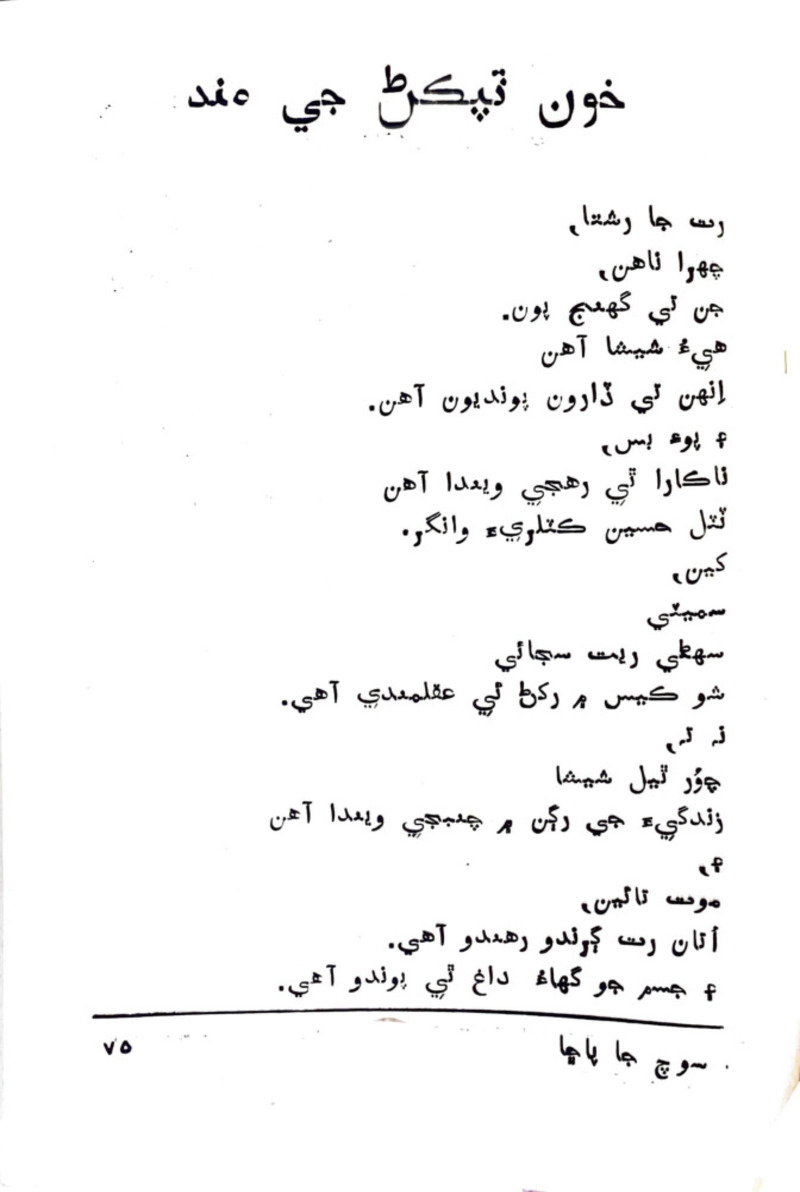 خون ٽپڪڻ جي مند
رت جا رشتا،
چهرا ناهن،
جن تي گهنج پون.
هيءُ شيشا آهن
اِنهن تي ڏارون پونديون آهن.
۽ پوءِ بس،
ناڪارا ٿي رهجي ويندا آهن
ٽٽل حسين ڪٽلريءَ وانگر.
کين،
سميٽي
سهڻي ريت سجائي
شو ڪيس ۾ رکڻ ئي عقلمندي آهي.
نہ تہ،
چُور ٿيل شيشا
زندگيءَ جي رڳن ۾ چڀجي ويندا آهن
۽،
موت تائين،
اُتان رت ڳڙندو رهندو آهي.
۽ جسم جو گهاءُ داغ ٿي پوندو آهي.
سوچ جا پاڇا
٧٥